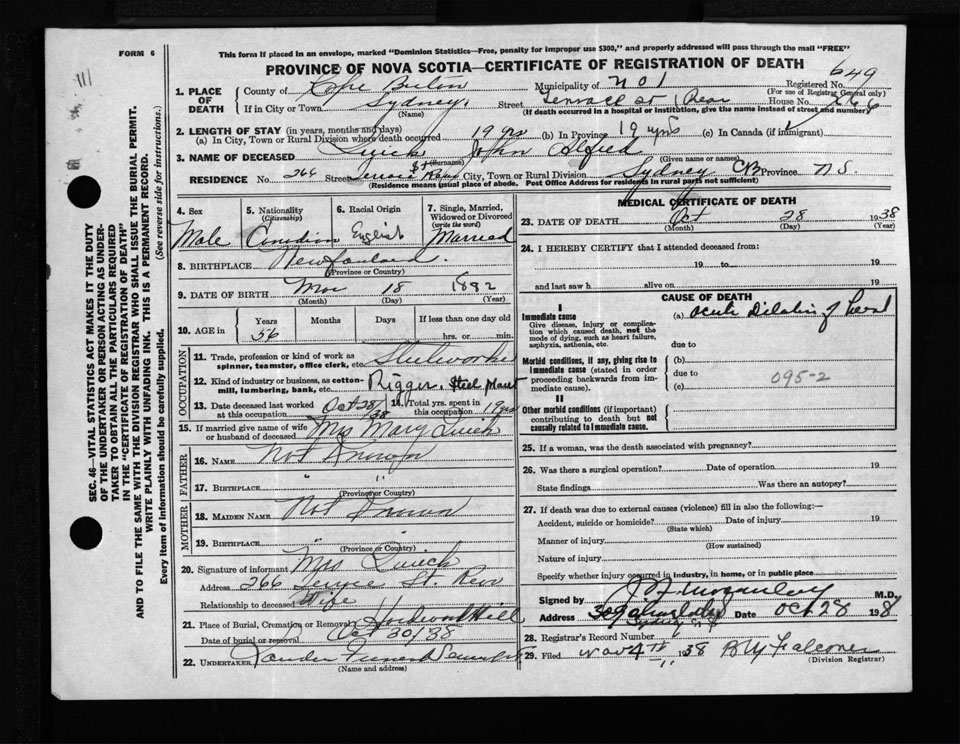 FORM 6
This form if placed in an envelope, marked "Dominion Statistics—Free, penalty for improper use $300," and properly addressed will pass through the mail "FREE"
PROVINCE OF NOVA SCOTIA—CERTIFICATE OF REGISTRATION OF DEATH
SEC. 46—VITAL STATISTICS ACT MAKES IT THE DUTY
OF THE UNDERTAKER OR PERSON ACTING AS UNDER-
TAKER TO OBTAIN ALL THE PARTICULARS REQUIRED
IN THE "CERTIFICATE OF REGISTRATION OF DEATH"
AND TO FILE THE SAME WITH THE DIVISION REGISTRAR WHO SHALL ISSUE THE BURIAL PERMIT.
WRITE PLAINLY WITH UNFADING INK. THIS IS A PERMANENT RECORD.
Every item of information should be carefully supplied. (See reverse side for instructions.)
1. PLACE OF DEATH County of Cape Breton Municipality of No 1 Registered No. 649
(For use of Registrar General only)
If in City or Town Sydney Street Terrace St Rear House No. 266
(Name) (If death occurred in a hospital or institution, give the name instead of street and number)
2. LENGTH OF STAY (in years, months and days)
(a) In City, Town or Rural Division where death occurred 19 yrs (b) In Province 19 yrs (c) In Canada (if immigrant)
3. NAME OF DECEASED Quick John Alfred
(Surname) (Given name or names)
RESIDENCE No. 266 Street Terrace St Rear City, Town or Rural Division Sydney CB Province N.S.
(Residence means usual place of abode. Post Office Address for residents in rural parts not sufficient)
4. Sex 5. Nationality (Citizenship) 6. Racial Origin 7. Single, Married, Widowed or Divorced (write the word)
Male Canadian English Married
8. BIRTHPLACE Newfoundland
(Province or Country)
9. DATE OF BIRTH 18 1882
(Month) (Day) (Year)
10. AGE in Years Months Days If less than one day old
56 hrs. or min.
OCCUPATION
11. Trade, profession or kind of work as spinner, teamster, office clerk, etc. Steelworker
12. Kind of industry or business, as cotton-mill, lumbering, bank, etc. Rigger. Steel plant
13. Date deceased last worked at this occupation Oct 28/38 14. Total yrs. spent in this occupation 19 yrs
15. If married give name of wife or husband of deceased Mrs Mary Quick
FATHER
16. NAME Not Known
17. BIRTHPLACE " "
(Province or Country)
MOTHER
18. MAIDEN NAME Not Known
19. BIRTHPLACE
(Province or Country)
20. Signature of informant Mrs Quick
Address 266 Terrace St. Rear
Relationship to deceased Wife
21. Place of Burial, Cremation or Removal Hardwood Hill
Date of burial or removal Oct 30/38
22. UNDERTAKER
(Name and address)
MEDICAL CERTIFICATE OF DEATH
23. DATE OF DEATH Oct 28 1938
(Month) (Day) (Year)
24. I HEREBY CERTIFY that I attended deceased from:
19 to 19
and last saw h alive on 19
CAUSE OF DEATH
I
Immediate cause
Give disease, injury or complica-
tion which caused death, not the
mode of dying, such as heart failure,
asphyxia, asthenia, etc.
(a) Acute Dilation of heart
due to
Morbid conditions, if any, giving rise to
immediate cause (stated in order
proceeding backwards from im-
mediate cause).
(b)
due to
(c) 095-2
II
Other morbid conditions (if important)
contributing to death but not
causally related to immediate cause.
25. If a woman, was the death associated with pregnancy?
26. Was there a surgical operation? Date of operation 19
State findings Was there an autopsy?
27. If death was due to external causes (violence) fill in also the following:—
Accident, suicide or homicide? Date of injury 19
(State which)
Manner of injury
(How sustained)
Nature of injury
Specify whether injury occurred in industry, in home, or in public place
Signed by M.D.
Address Sydney N.S. Date Oct 28 1938
28. Registrar's Record Number
29. Filed Nov 4th 1938
(Division Registrar)